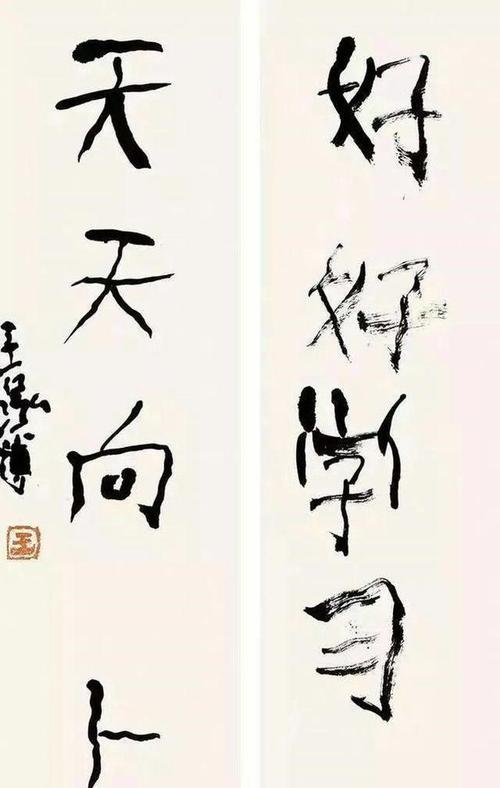 好好学习
天天向卜
王